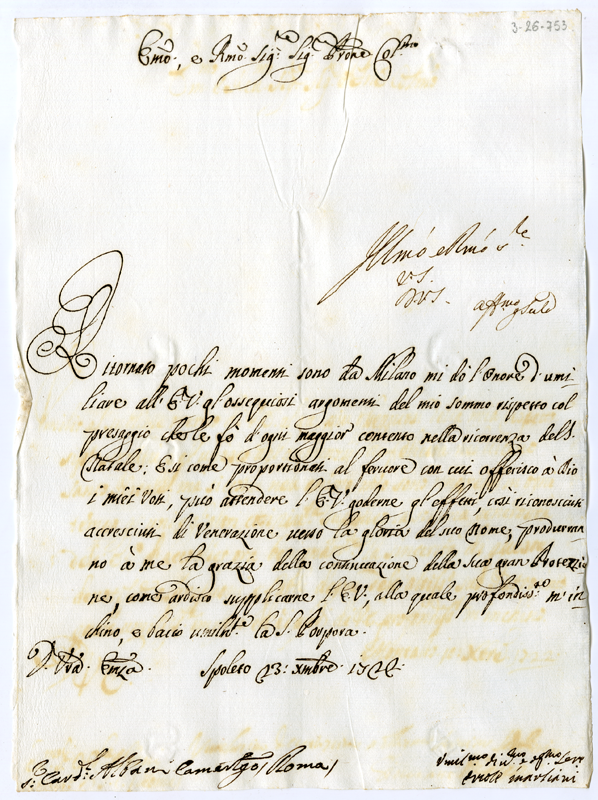 3-26-753
Emo, e Rmo Sig.r Sig.r Prone Col.mo
Illmo e Rmo s.re
V.S.
aff.mo
Ritornato pochi momenti sono da Milano mi dò l'onore d'umi-
liare all'E.V. gl'ossequiosi argomenti del mio sommo rispetto col
presaggio che le fò d'ogni maggior contento nella ricorrenza del S.
Natale; e si come proportionati al fervore con cui offerisco à Dio
i miei Voti, può attendere l'E.V. goderne gl'effetti, così riconosciuti
accresciuti di Venerazione verso la gloria del suo Nome, produrran-
no à me la grazia della continuazione della sua gran Protezzio
ne, come ardisco supplicarne l'E.V., alla quale profondis.te m'in-
chino, e bacio umilm.te la S. Porpora.
D. Vra. Emza. Spoleto 23: Xmbre 1722.
S.r Card.l Albani Camarlgo / Roma /
Umil.mo Div.mo e Obl.mo Serv